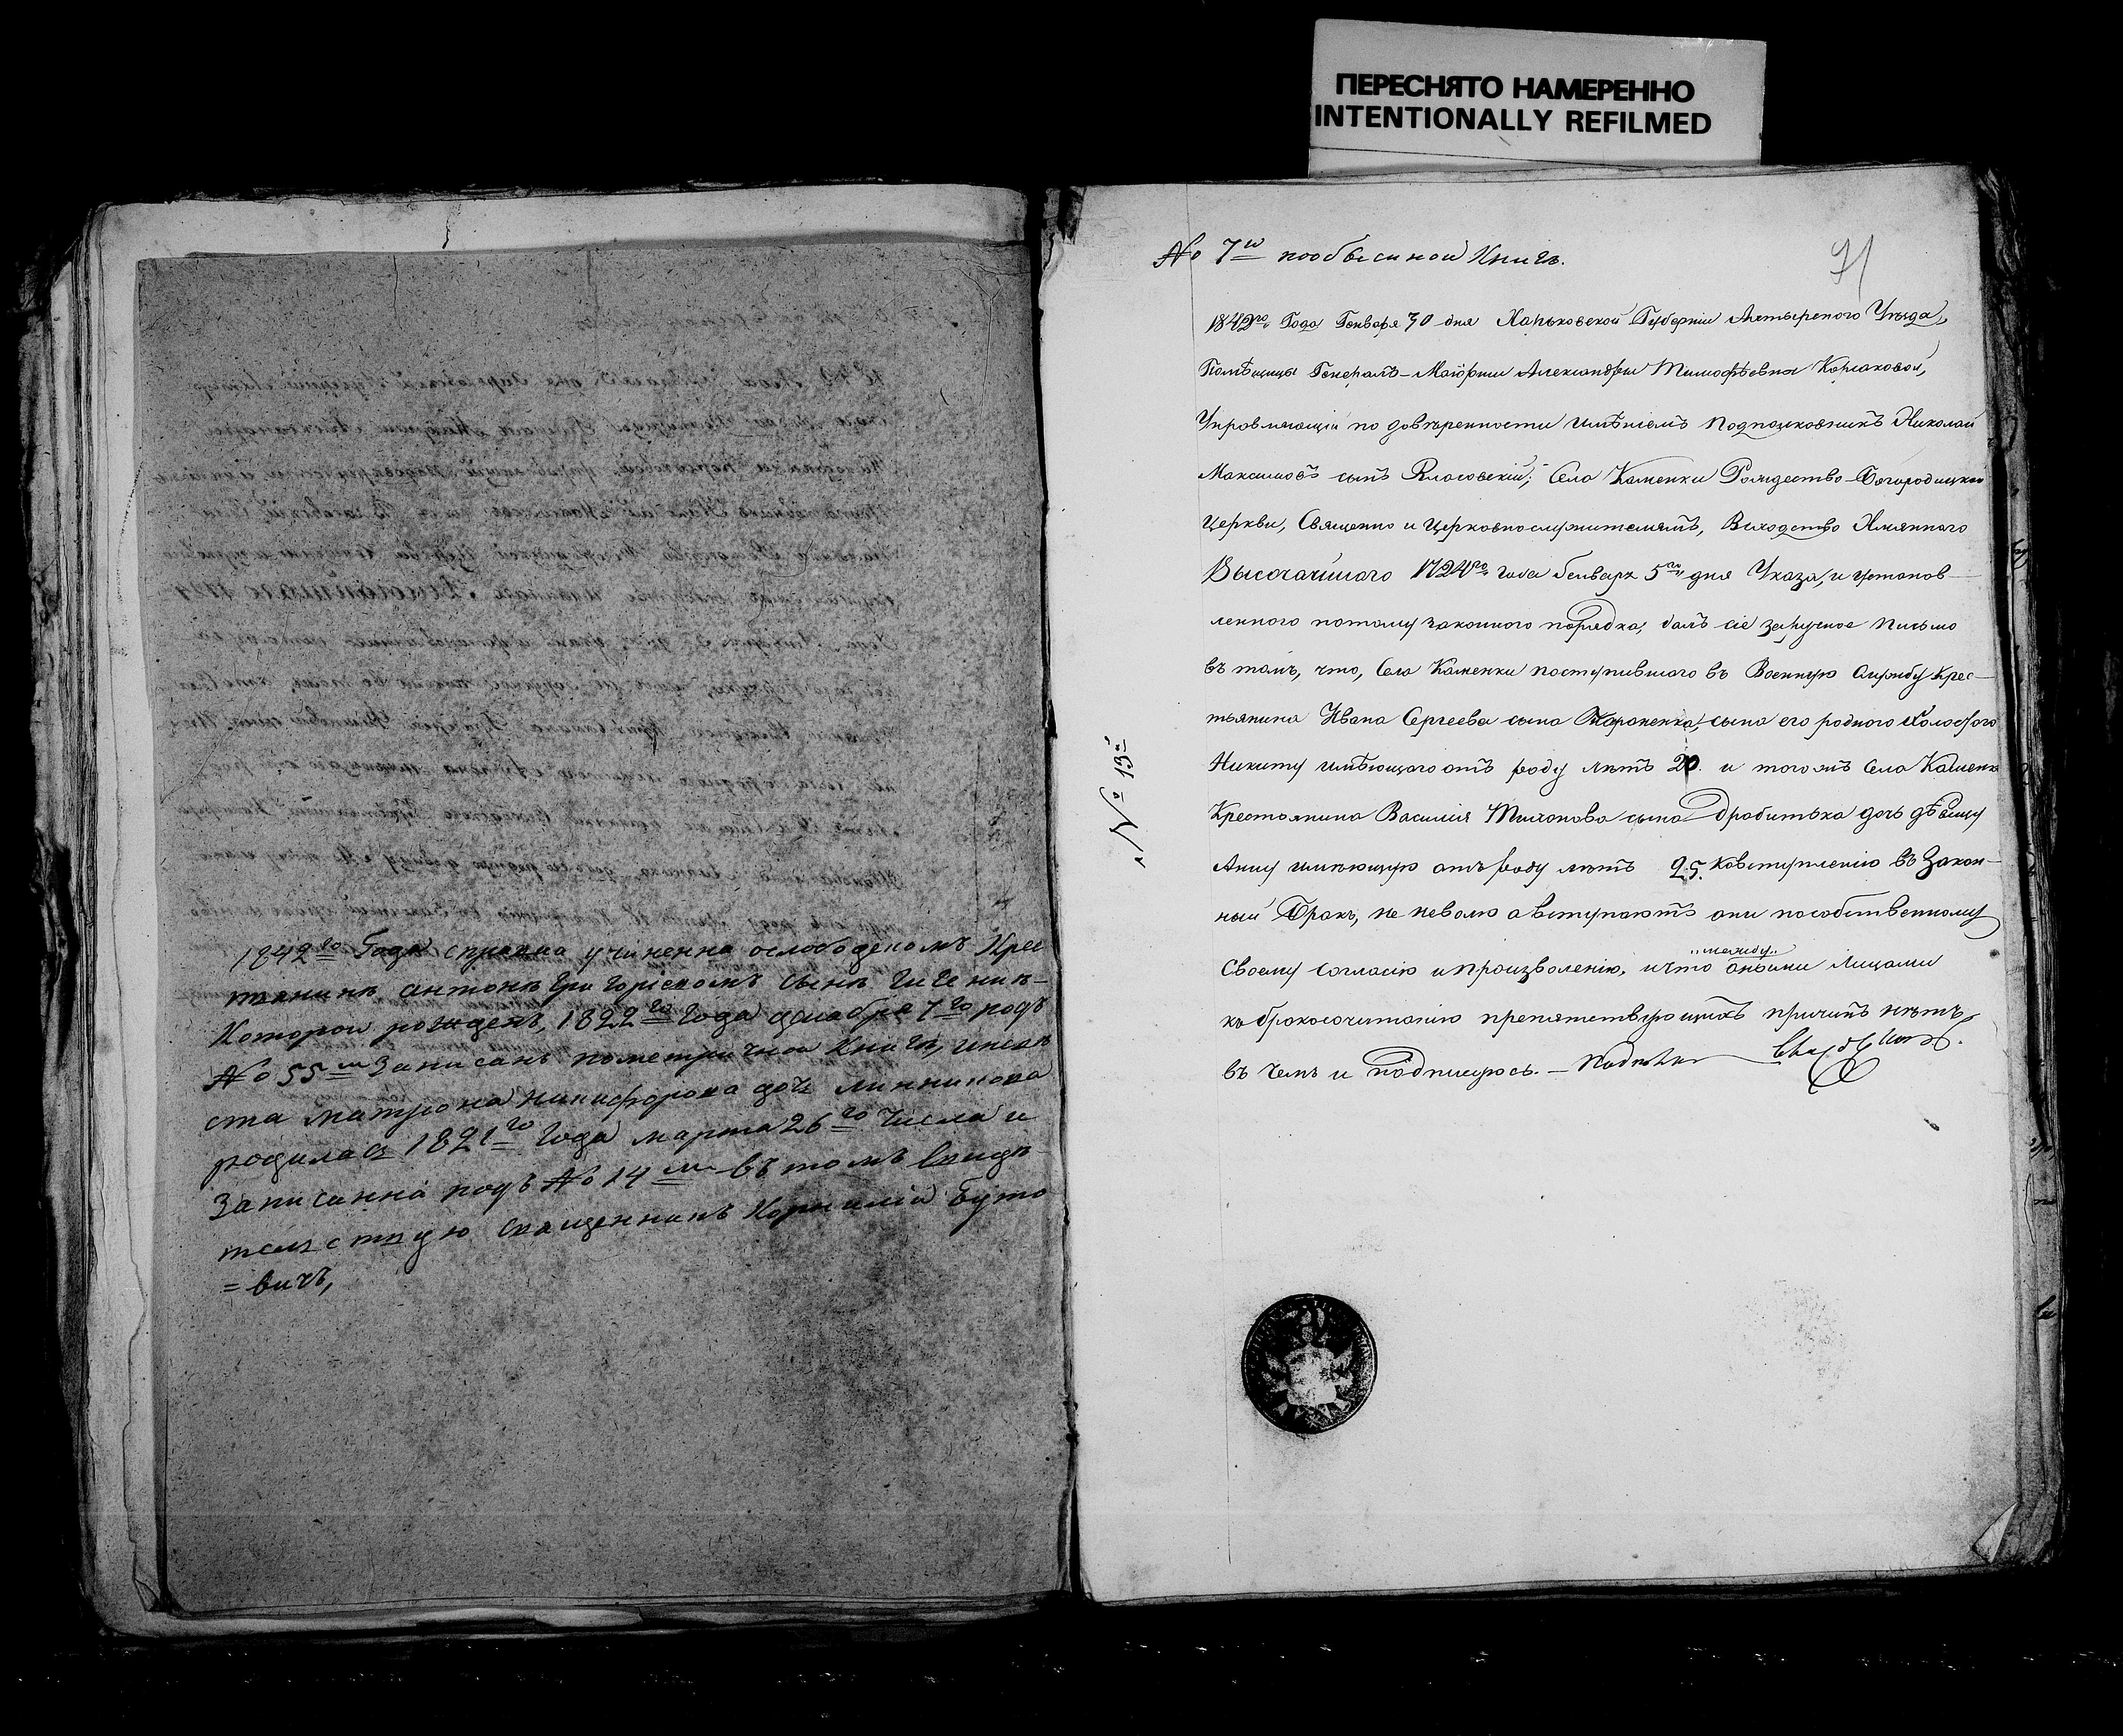 ПЕРЕСНЯТО НАМЕРЕННО
INTENTIONALLY REFILMED
1842го Года справка учиненна ослободскомъ Крес
тянинѣ антонѣ григорiевомъ сынѣ
которой рожденъ, 1822го года декабря 7го подъ
№ 55м записанъ пометричной Книгѣ, иневѣ
ста матрона никифорова дочь линникова
родилась 1821го Года марта 26го числа и
записанна подъ № 14м въ томъ свидѣ
телствую священникъ Корнилiй Буто
=вичъ,
№ 7й пообыскной Книгѣ.
91
1842го Года Генваря 30 дня Харьковской Губернiи Ахтырского Уѣзда,
Помѣщицы Генералъ-Маiорши Александры Тимофѣевны Корсаковой,
Управляющiй по довѣренности имѣнiемъ Подполковникъ Николай
Максимовъ сынъ Власовскiй; Села Каменки Рождество-Богородицкой
Церкви, Священно и Церковнослужителямъ, Всходство Имянного
Высочайшаго 1724го года Генваря 5го дня Указа, и установ-
ленного потому законного порядка, далъ сiе заручное письмо
въ томъ, что, Села Каменки поступившого въ Военную Службу Крес-
тьянина Ивана Сергеева сына сына его родного Холостого
Никиту имѣющого отъ роду лѣтъ 20. и тогожъ Села Каменки
Крестьянина Василия Тихонова сына Дробитька дочь дѣвицу
Анну имѣющую отъ роду лѣтъ 25. ковступленiю въ Закон-
ный Бракъ, не неволю а вступаютъ они пособственному
„между„
Своему согласiю ипроизволенiю, ичто оными Лицами
къ бракосочитанiю препятствующихъ причинъ нѣтъ,
въ чемъ и подпишусь. —
№ 13й